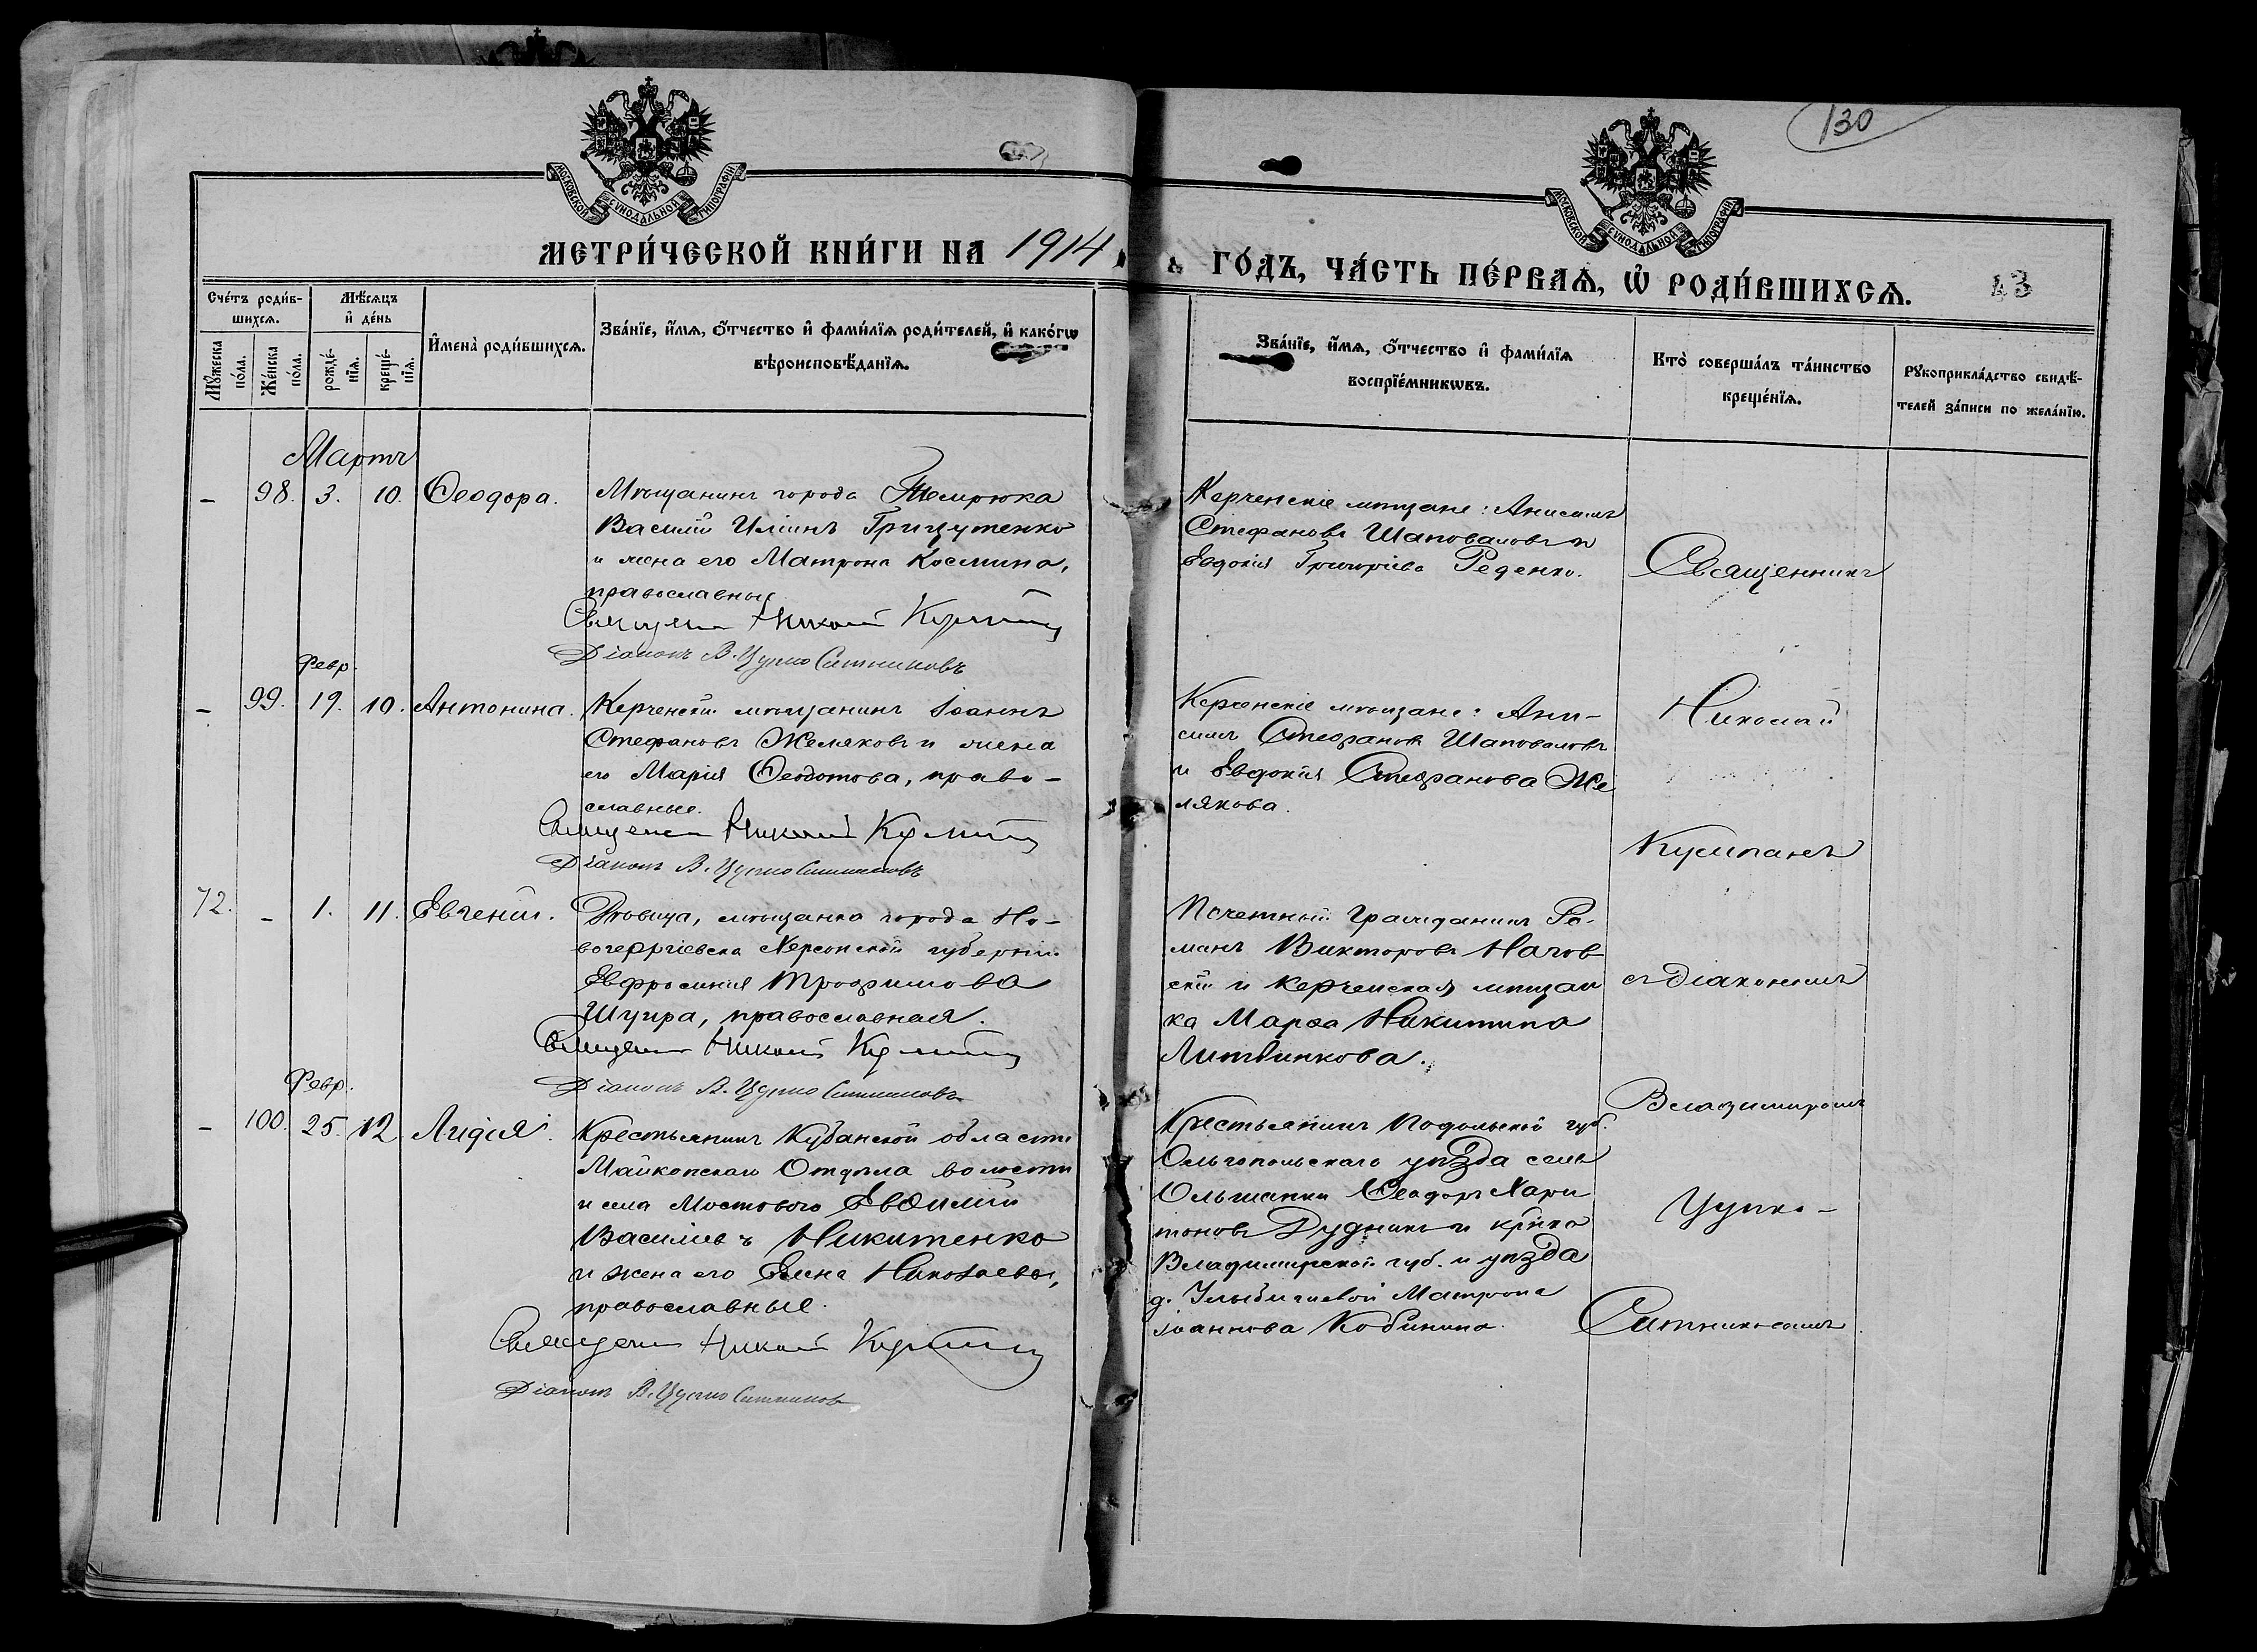 130
МОСКОВСКОЙ СѴНОДАЛЬНОЙ ТИПОГРАФІИ
МОСКОВСКОЙ СѴНОДАЛЬНОЙ ТИПОГРАФІИ
МЕТРИ́ЧЕСКОЙ КНИ́ГИ НА 1914
ГО́ДЪ, ЧА́СТЬ ПЕ́РВАѦ, Ѡ҆ РОДИ́ВШИХСѦ.
43
Сче́тъ роди́в-
шихсѧ.
Мѣ́сѧцъ
и҆ де́нь
Мꙋ́жеска
по́ла.
Же́нска
по́ла.
рожде́-
нїѧ.
креще́-
нїѧ.
И҆мена̀ роди́вшихсѧ.
Зва́нїе, и҆́мѧ, ѻ҆́тчество и҆ фами́лїѧ роди́телей, и҆ како́гѡ
вѣроисповѣ́данїѧ.
Зва́нїе, и҆́мѧ, ѻ҆́тчество и҆ фами́лїѧ
воспрїе́мникѡвъ.
Кто̀ соверша́лъ та́инство
креще́нїѧ.
Рꙋкоприкла́дство свидѣ́-
телей за́писи по жела́нїю.
Мартъ
– 98. 3. 10. Ѳеодора.
Мѣщанинъ города Темрюка
Василій Иліинъ Грицутенко
и жена его Матрона Космина,
православные
Священ Николай Кумпанъ
Діаконъ В. Цупко Ситниковъ
Керченскіе мѣщане: Анисимъ
Стефановъ Шаповаловъ и
Евдокія Григоріева Реденко.
Священникъ
Февр.
– 99. 19. 10. Антонина.
Керченскій мѣщанинъ Іоаннъ
Стефановъ Желяковъ и жена
его Марія Ѳеодотова, право-
славные.
Священ Николай Кумпанъ
Діаконъ В. Цупко Ситниковъ
Керченскіе мѣщане: Ани-
симъ Стефановъ Шаповаловъ
и Евдокія Стефанова Же
лякова.
Николай
Кумпанъ
72. – 1. 11. Евгеній.
Дѣвица, мѣщанка города Но-
вогеоргіевска Херсонской губерніи
Евфросинія Трофимова
Шугра, православная.
Священ Николай Кумпанъ
Діаконъ В. Цупко Ситниковъ
Почетный Гражданинъ Ро-
манъ Викторовъ Нагов
скій и Керченская мѣщан
ка Марѳа Никитина
Литвинкова.
съ Діакономъ
Владиміромъ
Февр.
– 100. 25. 12. Лидія.
Крестьянинъ Кубанской области
Майкопскаго Отдѣла волости
и села Мостового Евѳимій
Василіевъ Никитенко
и жена его Елена Николаева,
православные.
Священ Николай Кумпанъ
Діаконъ В. Цупко Ситниковъ
Крестьянинъ Подольской губ.
Ольгопольскаго уѣзда села
Ольшанки Ѳеодоръ Хари
тоновъ Дудникъ и кр-нка
Владимирской губ. и уѣзда
д. Матрона
Іоаннова Кобинина.
Цупко-
Ситниковымъ